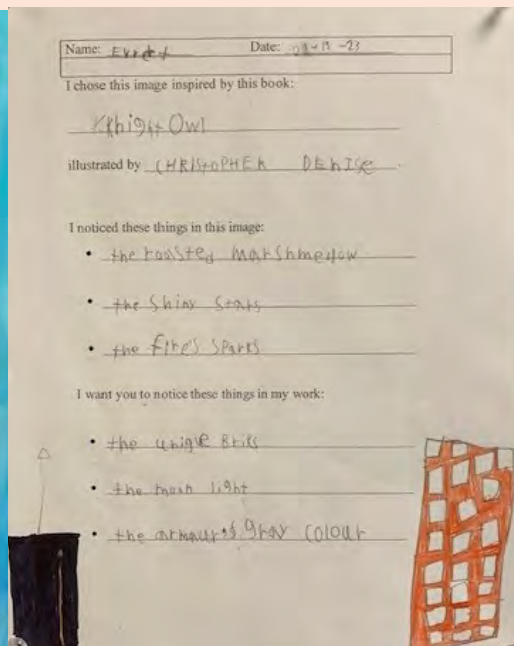 Name: Evrdt Date: 09-19-23
I chose this image inspired by this book:
Knight Owl
illustrated by CHRIStOPHER DEnISe.
I noticed these things in this image:
• the roasted marshmellow
• the Shiny Stars
• the fire's Sparks
I want you to notice these things in my work:
• the uniqe Briks
• the moon light
• the armour's gray colour